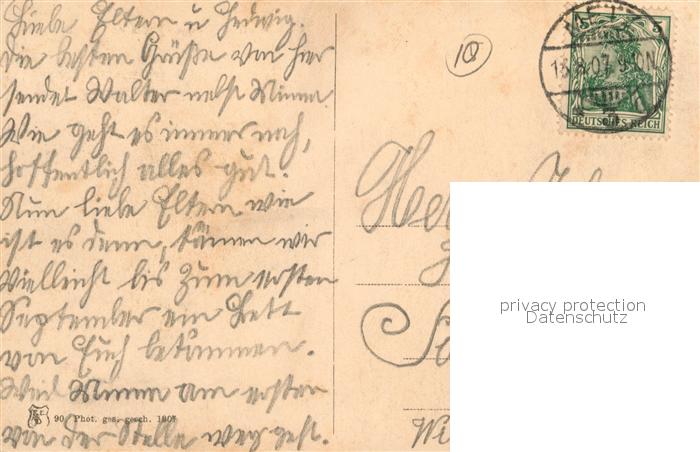 Liebe Eltern u Hedwig.
Die besten Grüße von hier
sendet Walter nebst Minna
Wie geht es immer noch,
hoffentlich alles gut.
Nun liebe Eltern wie
ist es denn, können wir
vielleicht bis zum ersten
September ein Bett
von Euch bekommen.
Weil Minna am ersten
von der Stelle weg geht.
90 Phot. ges. gesch. 1907
10
METZ
07. 9-10N
DEUTSCHES REICH
privacy protection
Datenschutz